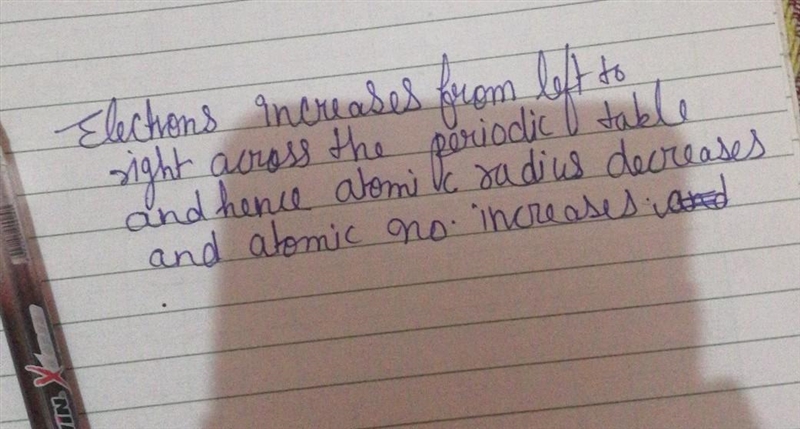 Electrons increases from left to
right across the periodic table
and hence atomic radius decreases
and atomic no. increases.